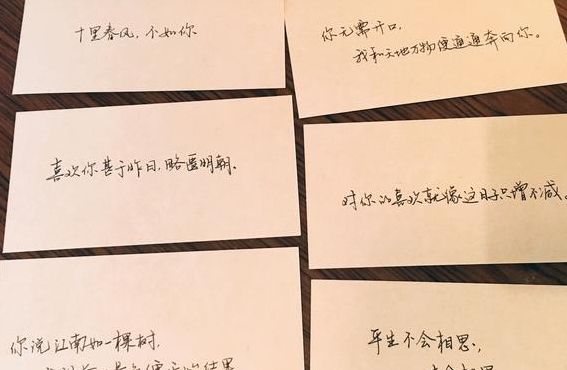 十里春风，不如你
你无需开口，
我和天地万物便通通奔向你。
喜欢你甚于昨日，略匮明朝。
对你的喜欢就像这日子只增不减。
你说江南如一棵树，
平生不会相思，